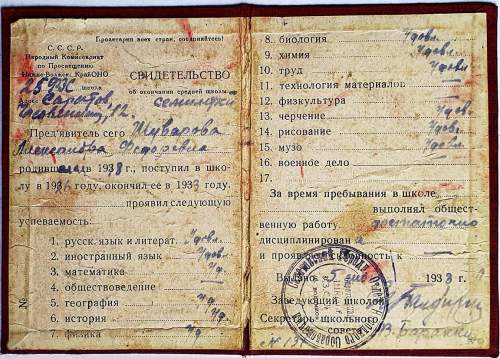 Пролетарии всех стран, соединяйтесь!
С. С. С. Р.
Народный Комиссариат
по Просвещению
Нижне-Волжск. КрайОНО
школа
Адрес Саратов,
СВИДЕТЕЛЬСТВО
об окончании средней школы
семилетки
Пред'явитель сего Шуварова
Александра Федоровна
родивш в 19 г., поступил в шко-
лу в 19 году, окончил ее в 1933 году.
проявил следующую
успеваемость:
1. русск. язык и литерат. Удовл.
2. иностранный язык Удовл.
3. математика уд.
4. обществоведение
5. география уд.
6. история уд.
7. физика уд
№
8. биология Удовл.
9. химия Удовл.
10. труд Удовл
11. технология материалов —
12. физкультура —
13. черчение Удовл.
14. рисование Удовл.
15. музо Удовл.
16. военное дело —
17.
За время пребывания в школе,
выполнял общест-
венную работу достаточно
дисциплинирован а
и проявил склонность к —
Выдано 5 1933 г.
Заведующий школой
Секретарь школьного
совета